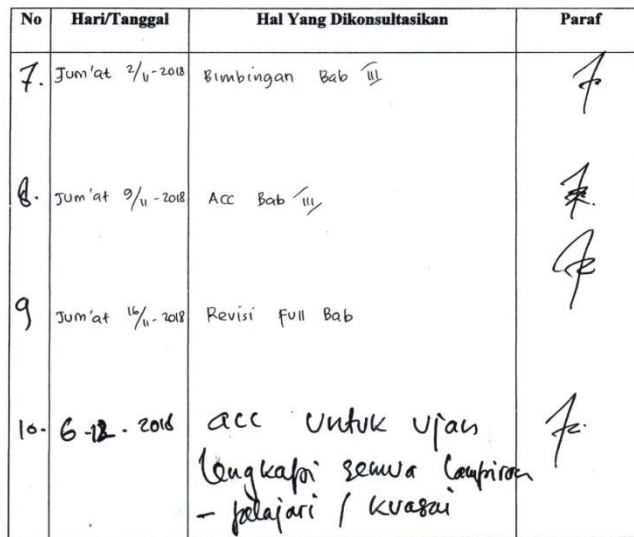 No Hari/Tanggal Hal Yang Dikonsultasikan Paraf
7. Jum'at 2/11-2018 Bimbingan Bab III
8. Jum'at 9/11-2018 Acc Bab III
9 Jum'at 16/11-2018 Revisi Full Bab
10. 6-12-2018 acc untuk ujian
lengkapi semua lampiran
- pelajari / kuasai